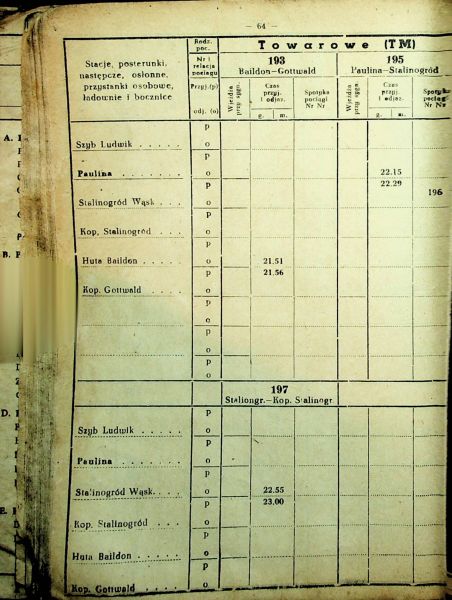 — 64 —
Stacje, posterunki, następcze, osłonne, przystanki osobowe, ładownie i bocznice
Rodz. poc.
Nr i relacja pociągu
Przyj. (p)
odj. (o)
Towarowe (TM)
193
Baildon—Gottwald
195
Paulina—Stalinogród
Wjeżdża przy sygn.
Czas przyj. i odjaz.
g. m.
Spotyka pociągi Nr Nr
Wjeżdża przy sygn.
Czas przyj. i odjaz.
g. m.
Spotyka pociągi Nr Nr
p
Szyb Ludwik . . . . . o
p
Paulina . . . . . . . o 22.15
p 22.29
Stalinogród Wąsk . . . o 196
p
Kop. Stalinogród . . . o
p
Huta Baildon . . . . . o 21.51
p 21.56
Kop. Gottwald . . . . o
p
o
p
o
p
o
197
Staliongr.—Kop. Stalinogr.
p
Szyb Ludwik . . . . . o
p
Paulina . . . . . . . o
p
Stalinogród Wąsk. . . . o 22.55
p 23.00
Kop. Stalinogród . . . o
p
Huta Baildon . . . . . o
p
Kop. Gottwald . . . . o
A.
B.
D.
E.